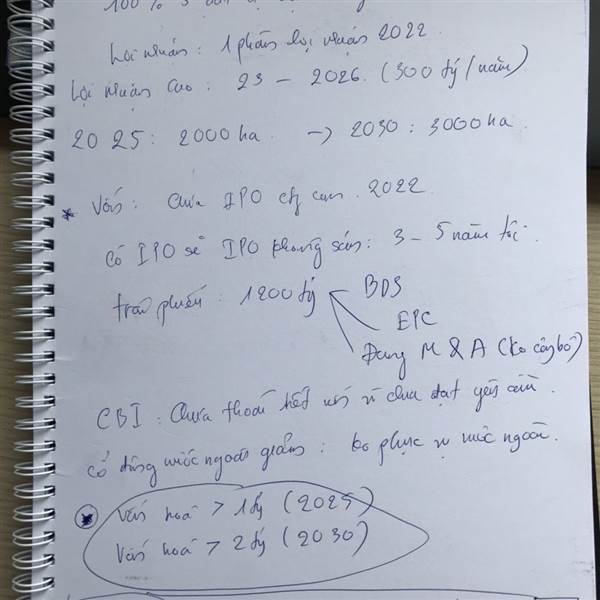 Lợi nhuận : 1 phần lợi nhuận 2022.
Lợi nhuận cao : 23 - 2026. (300 tỷ / năm)
2025 : 2000 ha -> 2030 : 3000 ha
* Vốn : Chưa IPO cty con. 2022.
Có IPO sẽ IPO phong sán : 3 - 5 năm tới.
trái phiếu : 1200 tỷ
BDS
EPC
Đang M & A (ko công bố)
CBI : Chưa thoái hết vốn vì chưa đạt yêu cầu.
cổ đông nước ngoài giảm : ko phục vụ nước ngoài.
* Vốn hoá > 1 tỷ (2025)
Vốn hoá > 2 tỷ (2030)